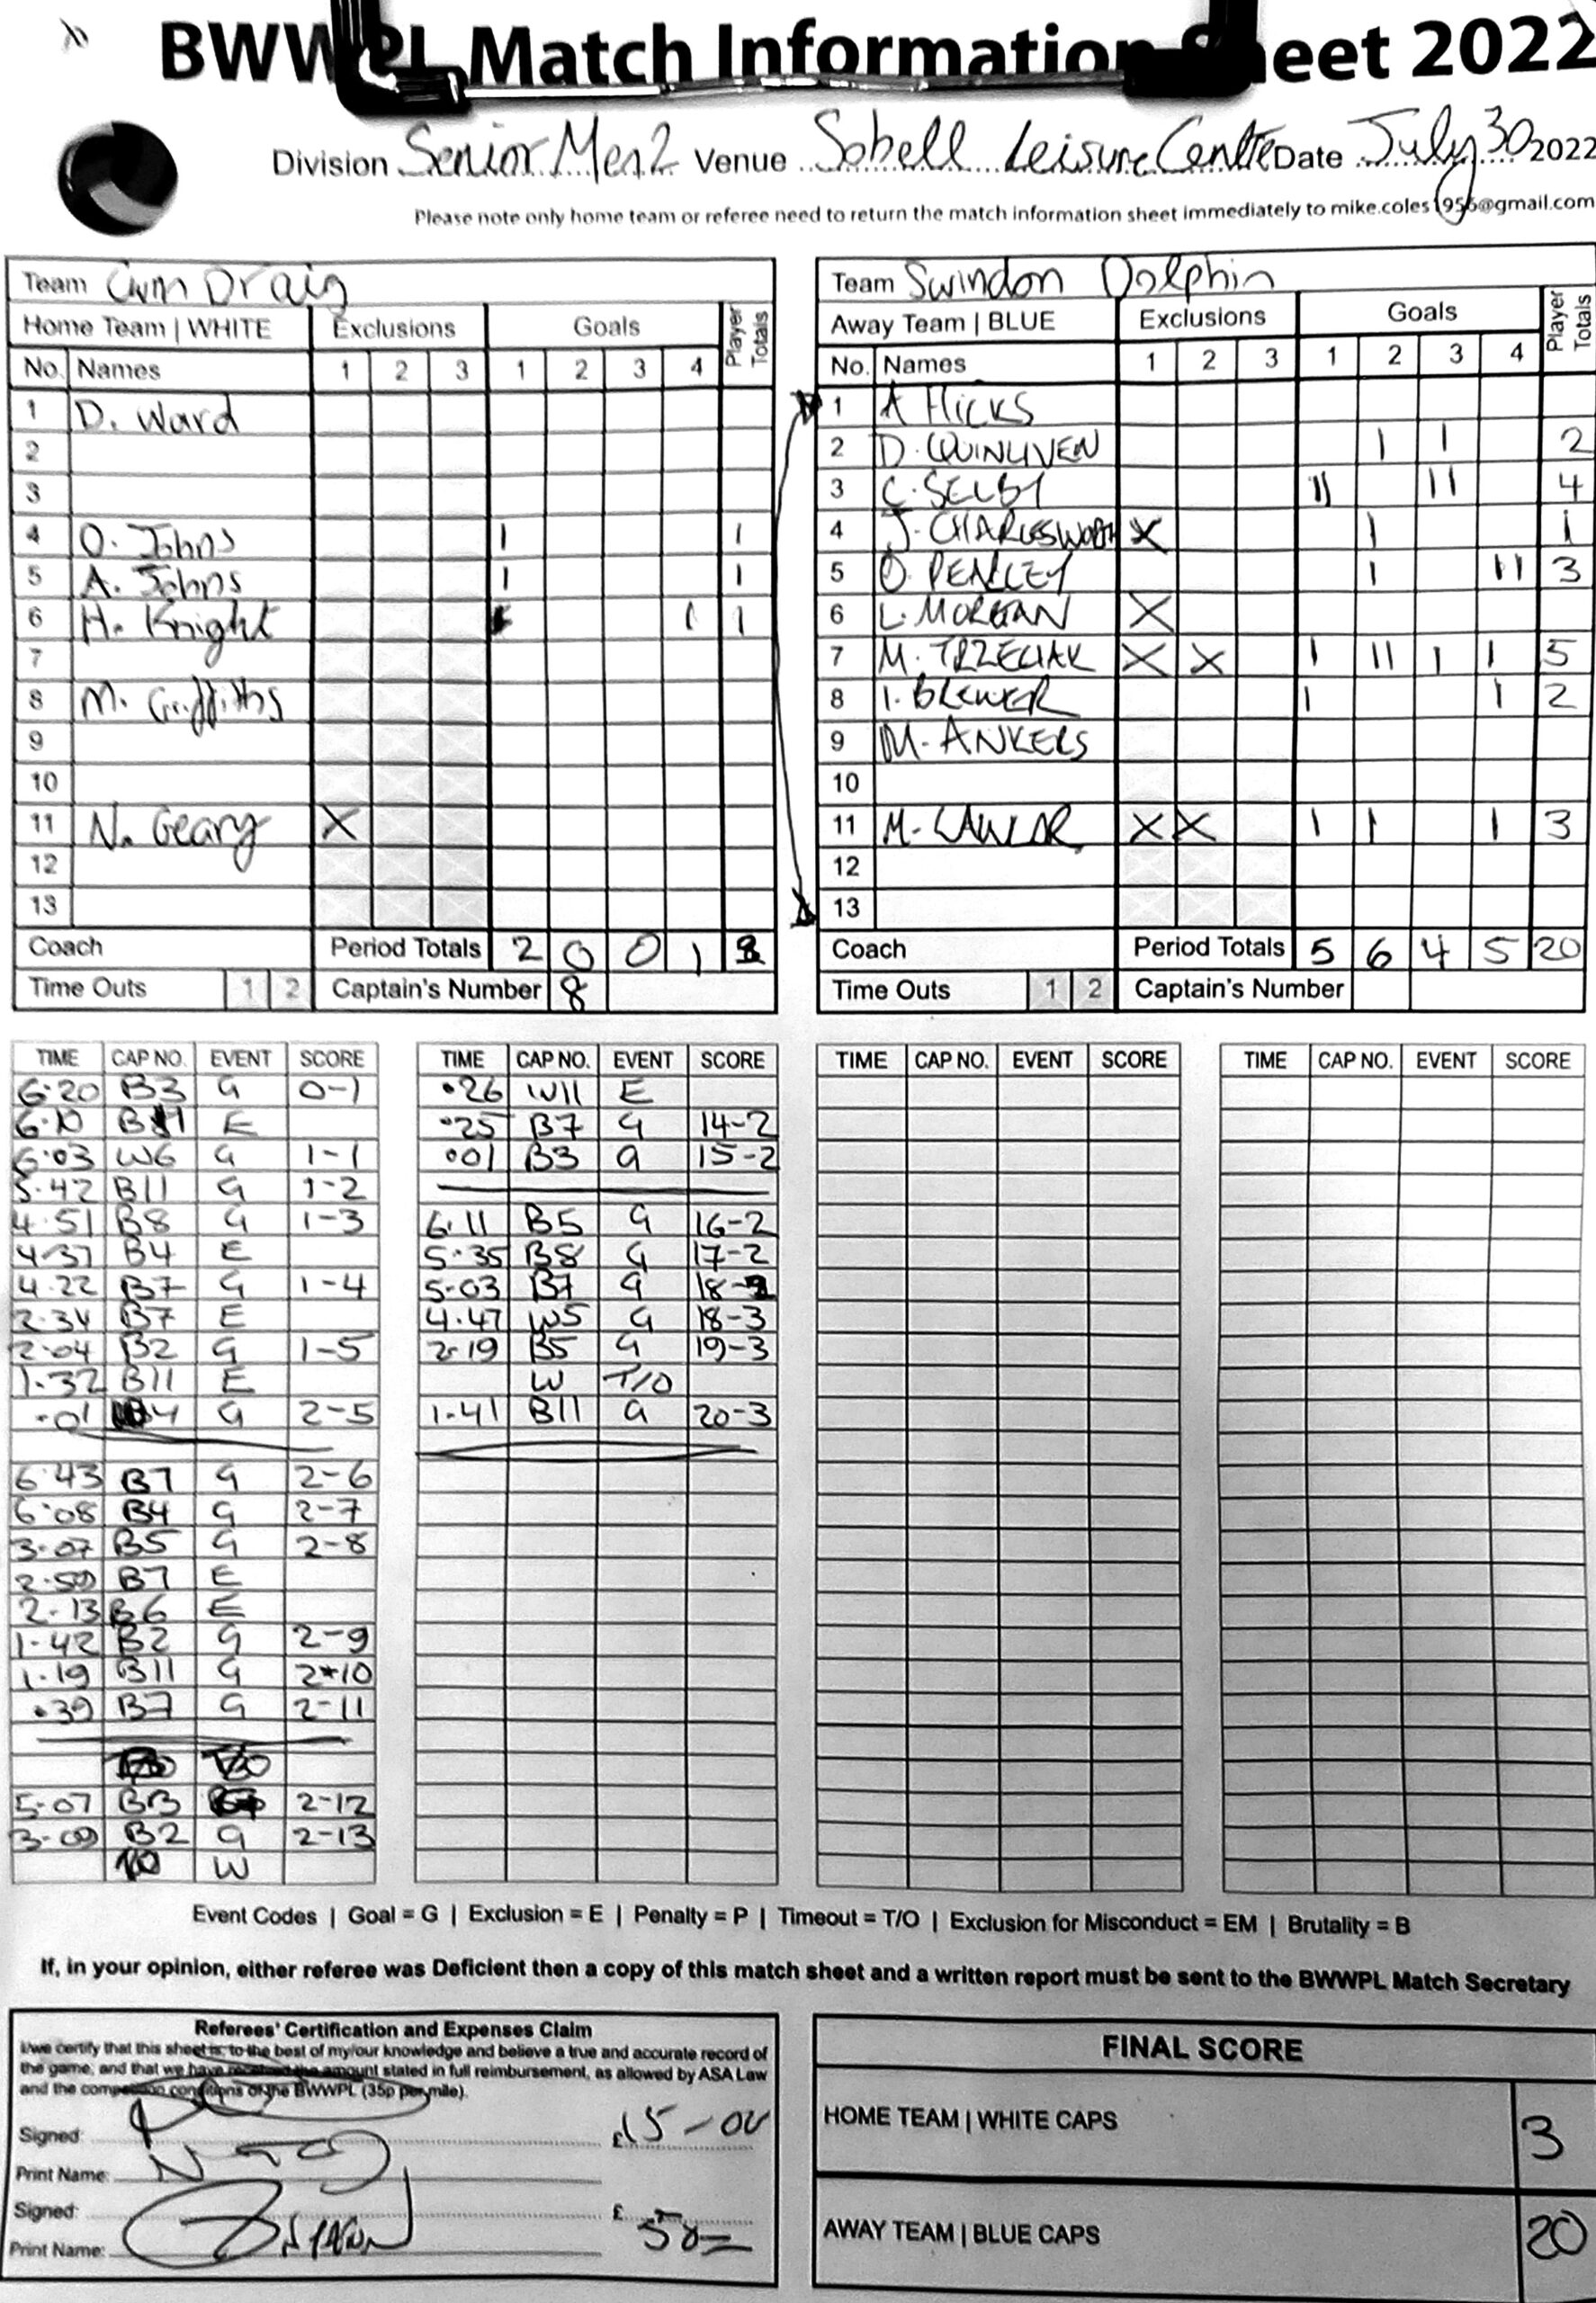 BWWPL Match Information Sheet 2022
Division Senior Men 2 Venue Sobell Leisure Centre Date July 30 2022
Please note only home team or referee need to return the match information sheet immediately to mike.coles1956@gmail.com
Team Cwm Draig
Home Team | WHITE Exclusions Goals Player Totals
No. Names 1 2 3 1 2 3 4
1 D. Ward
2
3
4 O. Johns 1 1
5 A. Johns 1 1
6 H. Knight 1 1
7
8 M. Griffiths
9
10
11 N. Geary X
12
13
Coach Period Totals 2 0 0 1 3
Time Outs 1 2 Captain's Number 8
Team Swindon Dolphin
Away Team | BLUE Exclusions Goals Player Totals
No. Names 1 2 3 1 2 3 4
1 A HICKS
2 D. QUINLIVEN 1 1 2
3 C. SELBY 11 11 4
4 J. CHARLESWORTH X 1 1
5 O. PENLEY 1 11 3
6 L. MORGAN X
7 M. TRZECIAK X X 1 11 1 1 5
8 I. BREWER 1 1 2
9 M. ANKERS
10
11 M. LAWLOR X X 1 1 1 3
12
13
Coach Period Totals 5 6 4 5 20
Time Outs 1 2 Captain's Number
TIME CAP NO. EVENT SCORE
6.20 B3 G 0-1
6.10 B11 E
6.03 W6 G 1-1
5.42 B11 G 1-2
4.51 B8 G 1-3
4.37 B4 E
4.22 B7 G 1-4
2.34 B7 E
2.04 B2 G 1-5
1.32 B11 E
.01 4 G 2-5
6.43 B7 G 2-6
6.08 B4 G 2-7
3.07 B5 G 2-8
2.50 B7 E
2.13 B6 E
1.42 B2 G 2-9
1.19 B11 G 2-10
.39 B7 G 2-11
5.07 B3 2-12
3.00 B2 G 2-13
W
TIME CAP NO. EVENT SCORE
.26 W11 E
.25 B7 G 14-2
.01 B3 G 15-2
6.11 B5 G 16-2
5.35 B8 G 17-2
5.03 B7 G 18-2
4.47 W5 G 18-3
2.19 B5 G 19-3
W T/O
1.41 B11 G 20-3
TIME CAP NO. EVENT SCORE
TIME CAP NO. EVENT SCORE
Event Codes | Goal = G | Exclusion = E | Penalty = P | Timeout = T/O | Exclusion for Misconduct = EM | Brutality = B
If, in your opinion, either referee was Deficient then a copy of this match sheet and a written report must be sent to the BWWPL Match Secretary
Referees' Certification and Expenses Claim
I/we certify that this sheet is, to the best of my/our knowledge and believe a true and accurate record of
the game, and that we have received the amount stated in full reimbursement, as allowed by ASA Law
and the competition conditions of the BWWPL (35p per mile).
Signed: £15-00
Print Name:
Signed: £ 58=
Print Name:
FINAL SCORE
HOME TEAM | WHITE CAPS 3
AWAY TEAM | BLUE CAPS 20